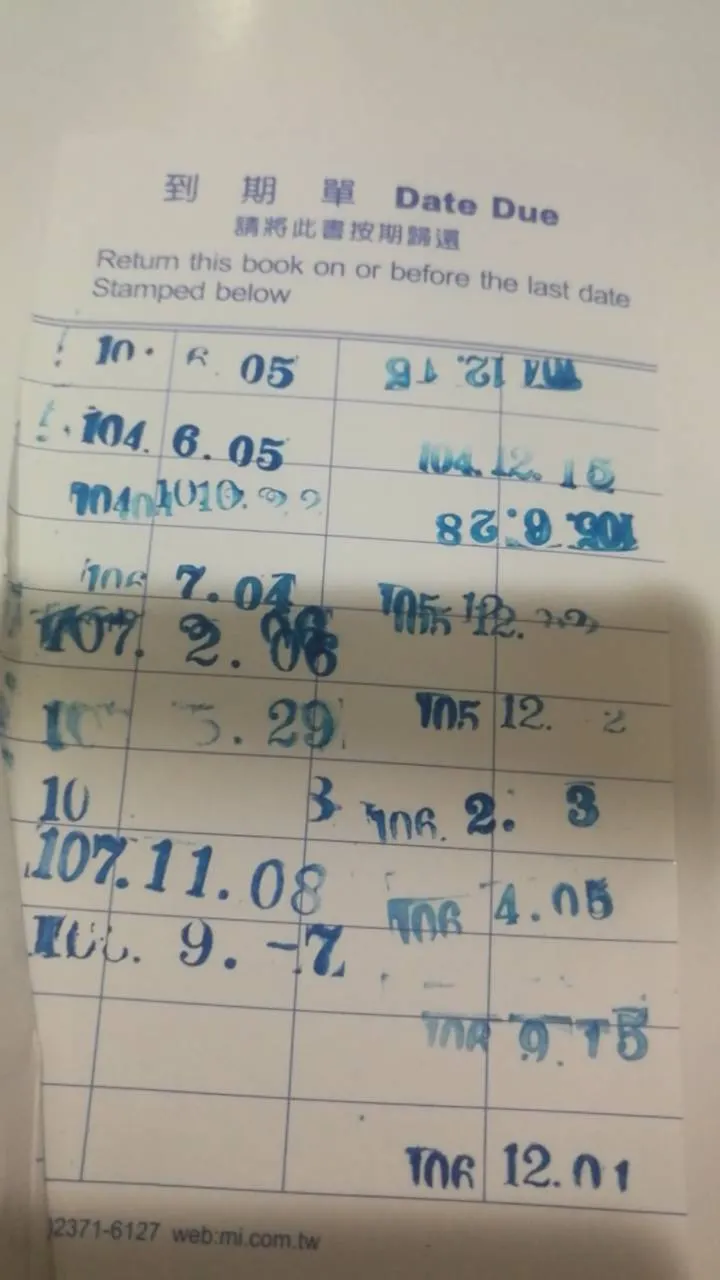 到期單 Date Due
請將此書按期歸還
Return this book on or before the last date
Stamped below
05
104.12.15
104. 6.05
104.12.15
105.6.28
7.04
105 12.
107. 2.06
.29
105 12. 2
10 3
106. 2. 3
107.11.08
106 4.05
9. -7
106 9.15
106 12.01
)2371-6127 web:mi.com.tw